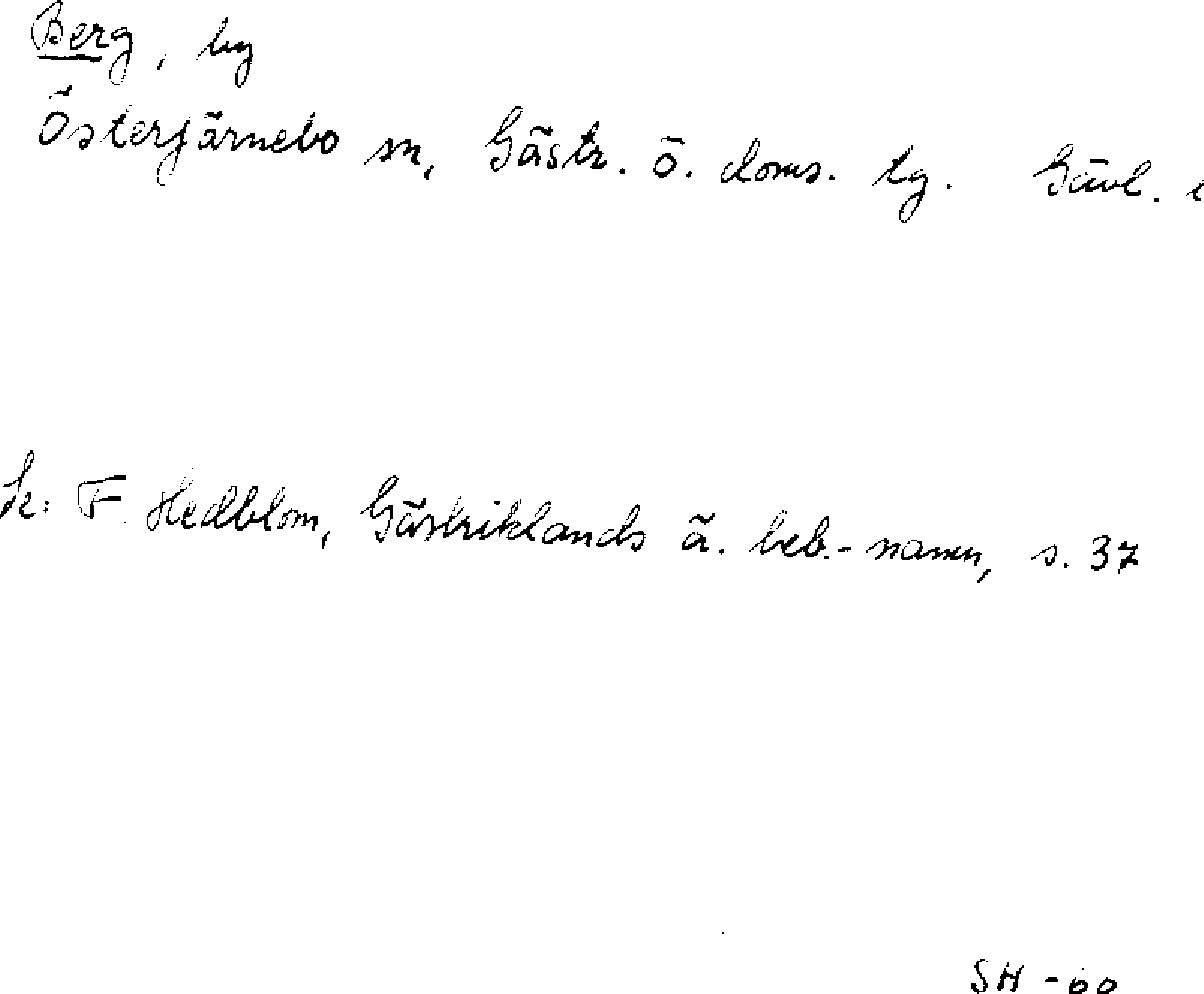 Berg, by
Österfärnebo sn, Gästr. ö. doms. tg. Gävl.
Se: F. Hedblom, Gästriklands ä. beb.-namn, s. 37
SH -60